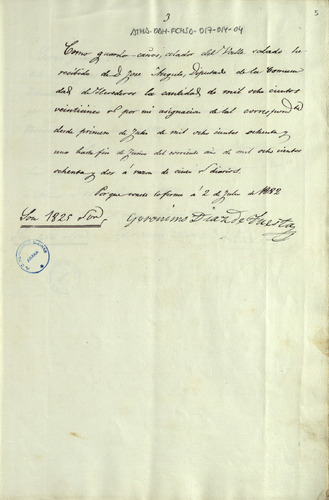 3
5
ATHA-DAH-FCHSO-017-014-04
Como guarda-cañas, celador del Valle salado he
recibido de D. Jose Angulo, Diputado de la Comuni
dad de Herederos la cantidad de mil ocho cientos
veinticinco rs por mi asignacion de tal correspondte
desde primero de Julio de mil ocho cientos ochenta y
uno hasta fin de Junio del corriente año de mil ocho cientos
ochenta y dos a razon de cinco rs diarios.
Para que conste lo firmo a 2 de Julio de 1882
Son 1825 rs vn
Geronimo Diaz de Tuesta